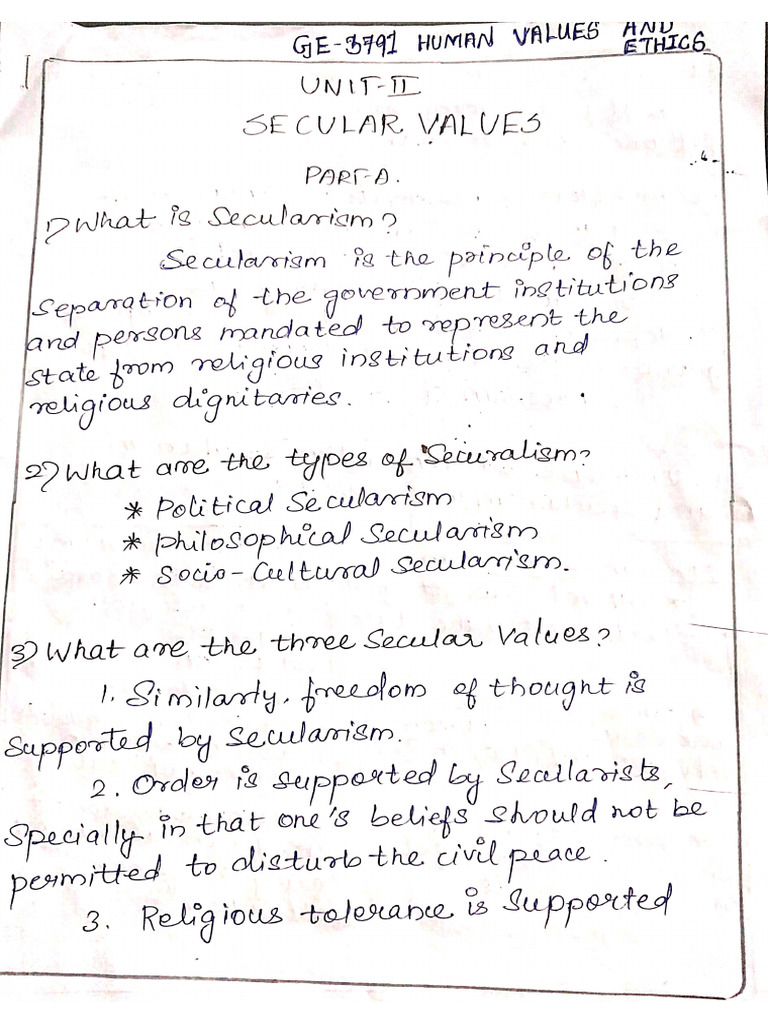 GE-3791 HUMAN VALUES AND
ETHICS
UNIT-II
SECULAR VALUES
PART-A.
1) What is Secularism?
Secularism is the principle of the
separation of the government institutions
and persons mandated to represent the
state from religious institutions and
religious dignitaries.
2) What are the types of Securalism?
* Political Secularism
* Philosophical Secularism
* Socio-Cultural Secularism.
3) What are the three Secular Values?
1. Similarly, freedom of thought is
supported by Secularism.
2. Order is supported by Secularists,
Specially in that one's beliefs should not be
permitted to disturb the civil peace.
3. Religious tolerance is supported